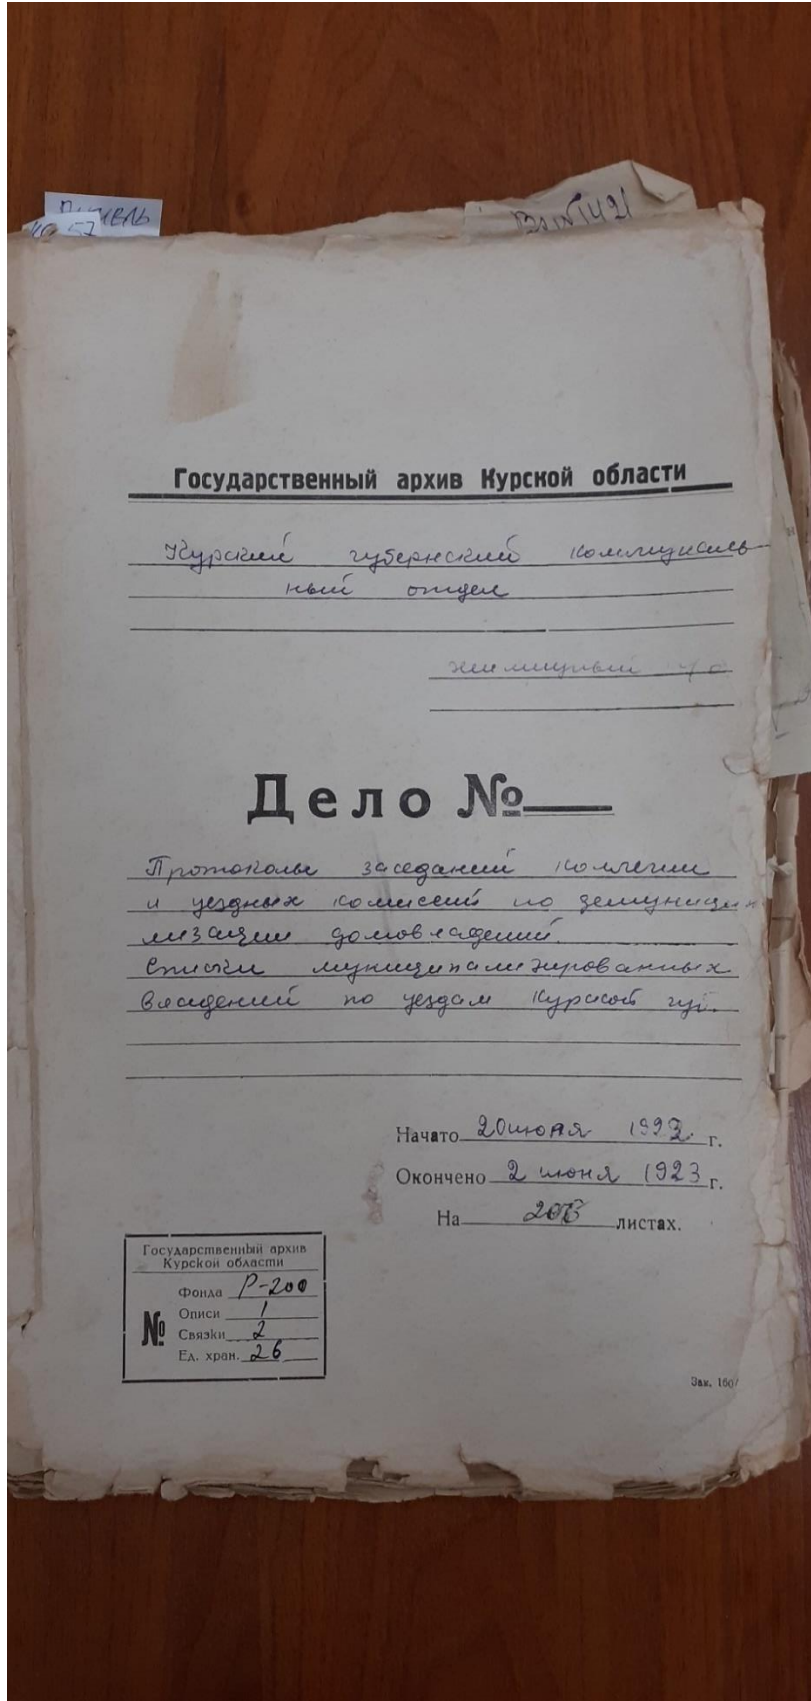 57
Государственный архив Курской области
Курский губернский коммуналь
ный отдел
жилищный
Дело №
Протоколы заседаний коллегии
и уездных комиссий по демуниципа
лизации домовладений.
Списки муниципализированных
владений по уездам Курской губ.
Начато 20 июля г.
Окончено 2 июня 1923 г.
На листах.
Государственный архив
Курской области
Фонда Р-200
Описи 1
№ Связки 2
Ед. хран. 26
Зак. 160